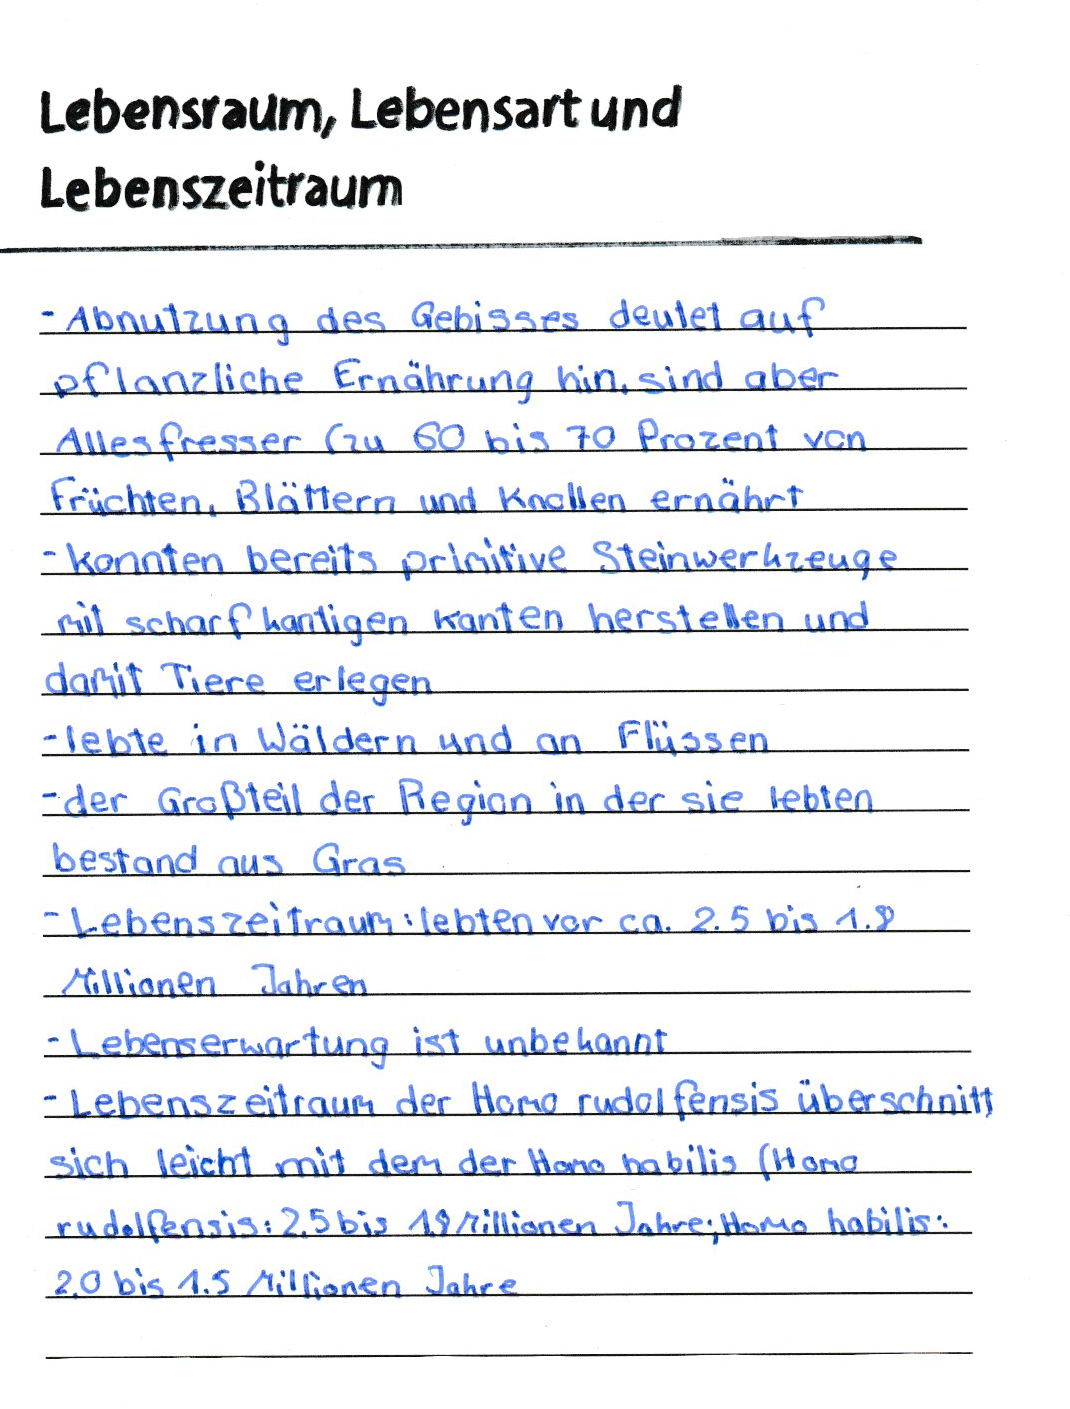 Lebensraum, Lebensart und
Lebenszeitraum
- Abnutzung des Gebisses deutet auf
pflanzliche Ernährung hin, sind aber
Allesfresser (zu 60 bis 70 Prozent von
Früchten, Blättern und Knollen ernährt
- konnten bereits primitive Steinwerkzeuge
mit scharfkantigen Kanten herstellen und
damit Tiere erlegen
- lebte in Wäldern und an Flüssen
- der Großteil der Region in der sie lebten
bestand aus Gras
- Lebenszeitraum: lebten vor ca. 2.5 bis 1.9
Millionen Jahren
- Lebenserwartung ist unbekannt
- Lebenszeitraum der Homo rudolfensis überschnitt
sich leicht mit dem der Homo habilis (Homo
rudolfensis: 2,5 bis 1,9 Millionen Jahre; Homo habilis:
2,0 bis 1.5 Millionen Jahre